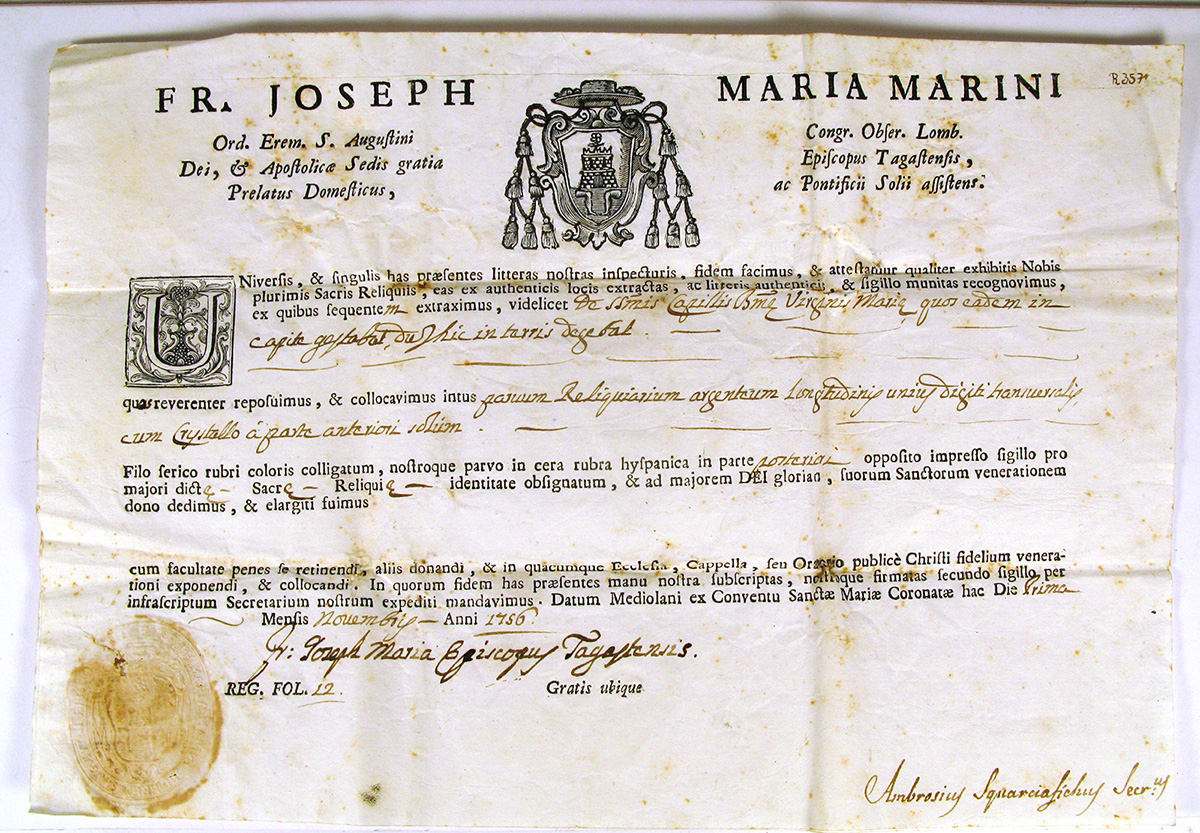 FR. JOSEPH MARIA MARINI
R.357
Ord. Erem. S. Augustini
Dei, & Apostolicæ Sedis gratia
Prelatus Domesticus,
Congr. Obser. Lomb.
Episcopus Tagastensis,
ac Pontificii Solii assistens.
UNiversis, & singulis has præsentes litteras nostras inspecturis, fidem facimus, & attestamur qualiter exhibitis Nobis
plurimis Sacris Reliquiis, eas ex authenticis locis extractas, ac litteris authenticis, & sigillo munitas recognovimus,
ex quibus sequentem extraximus, videlicet De SSmis Capillis Bmę Virginis Marię quos eadem in
capite gestabat, du hic in terris degebat.
quas reverenter reposuimus, & collocavimus intus parvum Reliquiarium argenteum longitudinis unius digiti transversalis,
cum Crystallo á parte anteriori solùm.
Filo serico rubri coloris colligatum, nostroque parvo in cera rubra hyspanica in parte posteriori opposito impresso sigillo pro
majori dictę Sacrę Reliquię identitate obsignatum, & ad majorem DEI gloriam, suorum Sanctorum venerationem
dono dedimus, & elargiti fuimus
cum facultate penes se retinendi, aliis donandi, & in quacumque Ecclesia, Cappella, seu Oratorio publicè Christi fidelium venera-
tioni exponendi, & collocandi. In quorum fidem has præsentes manu nostra subscriptas, nostroque firmatas secundo sigillo per
infrascriptum Secretarium nostrum expediti mandavimus. Datum Mediolani ex Conventu Sanctæ Mariæ Coronatæ hac Die Prima
Mensis Novembris Anni 1756.
Fr: Joseph Maria Episcopus Tagastensis.
REG. FOL. 12.
Gratis ubique
Ambrosius Squarciafichus Secr.us